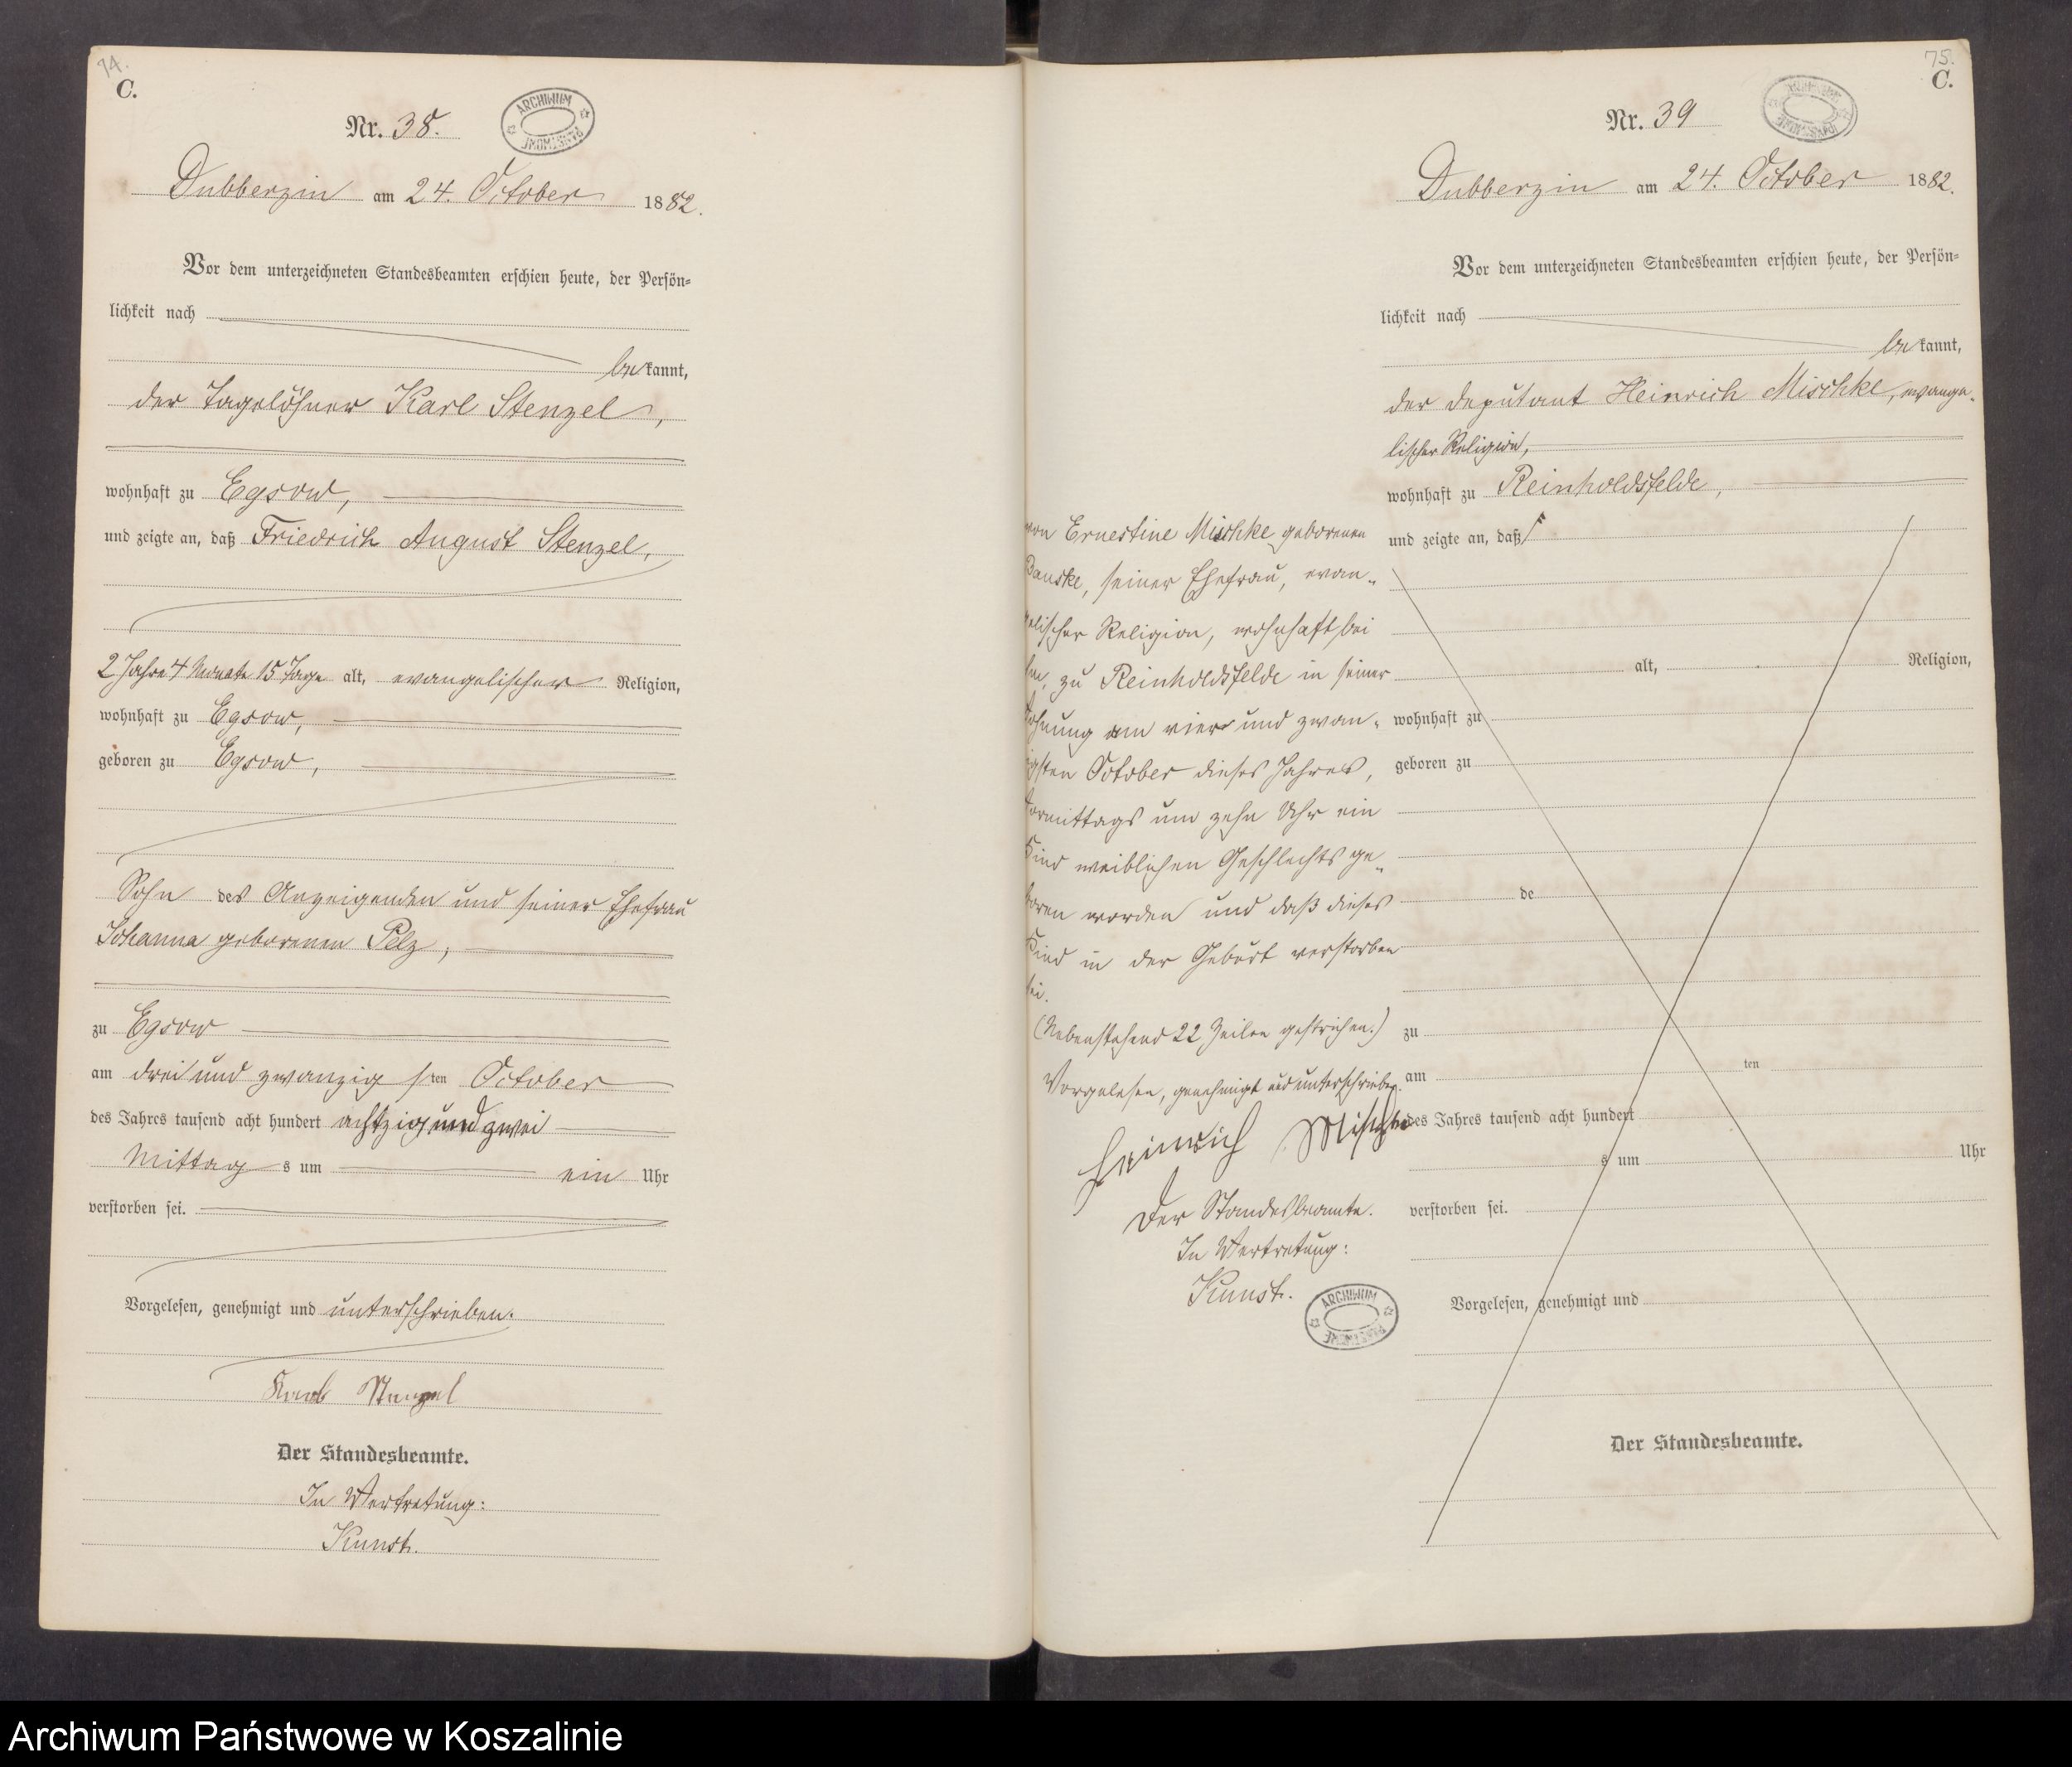 74.
C.
Nr. 38.
ARCHIWUM PAŃSTWOWE
Dubberzin am 24. October 1882.
Vor dem unterzeichneten Standesbeamten erschien heute, der Persön-
lichkeit nach
bekannt,
der Tagelöhner Karl Stenzel,
wohnhaft zu Egsow,
und zeigte an, daß Friedrich August Stenzel,
2 Jahre 4 Monate 15 Tage alt, evangelischer Religion,
wohnhaft zu Egsow,
geboren zu Egsow,
Sohn des Anzeigenden und seiner Ehefrau
Johanna geborenen Pelz,
zu Egsow
am drei und zwanzigsten October
des Jahres tausend acht hundert achtzig und zwei
Mittags um ein Uhr
verstorben sei.
Vorgelesen, genehmigt und unterschrieben.
Karl Stenzel
Der Standesbeamte.
In Vertretung:
Kunst.
75.
C.
Nr. 39
ARCHIWUM PAŃSTWOWE
Dubberzin am 24. October 1882.
Vor dem unterzeichneten Standesbeamten erschien heute, der Persön-
lichkeit nach
bekannt,
der Deputant Heinrich Mischke, evange-
lischer Religion,
wohnhaft zu Reinholdsfelde,
und zeigte an, daß
von Ernestine Mischke geborenen
Banske, seiner Ehefrau, evan-
gelischer Religion, wohnhaft bei
ihm, zu Reinholdsfelde in seiner
Wohnung am vier und zwan-
zigsten October dieses Jahres,
Vormittags um zehn Uhr ein
Kind weiblichen Geschlechts ge-
boren worden und daß dieses
Kind in der Geburt verstorben
sei.
(Nebenstehend 22 Zeilen gestrichen.)
Vorgelesen, genehmigt und unterschrieben.
Heinrich Mischke
Der Standesbeamte.
In Vertretung:
Kunst.
ARCHIWUM PAŃSTWOWE
alt, Religion,
wohnhaft zu
geboren zu
de
zu
am ten
des Jahres tausend acht hundert
s um Uhr
verstorben sei.
Vorgelesen, genehmigt und
Der Standesbeamte.
Archiwum Państwowe w Koszalinie